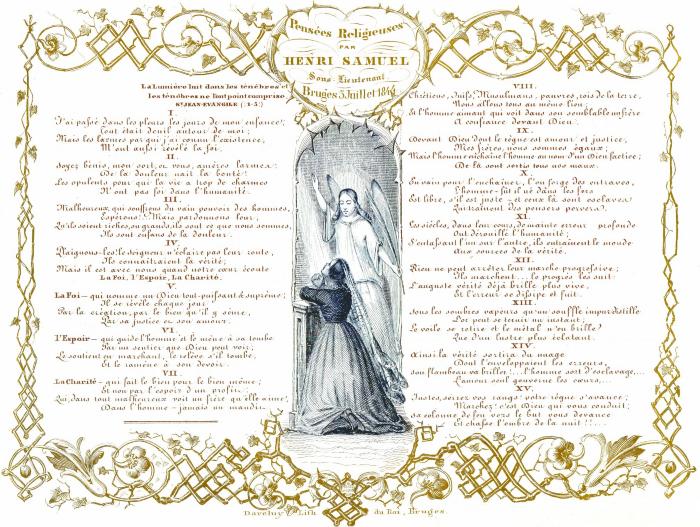 Pensées Religieuses
PAR
HENRI SAMUEL
Sous-Lieutenant
Bruges 5 Juillet
La Lumière luit dans les ténèbres et
les ténèbres ne l'ont point comprise
St JEAN-EVANGILE (1-5.)
I.
J'ai passé dans les pleurs les jours de mon enfance:
Tout était deuil autour de moi;
Mais les larmes par qui j'ai connu l'existence,
M'ont aussi révélé la foi.
II.
Soyez bénis, mon sort, ou vous, amères larmes!
De la douleur naît la bonté!
Les opulents pour qui la vie a trop de charmes
N'ont pas foi dans l'humanité.
III.
Malheureux, qui souffrons du vain pouvoir des hommes,
Espérons! Mais pardonnons leur,
Qu'ils soient riches, ou grands, ils sont ce que nous sommes,
Ils sont enfans de la douleur.
IV.
Plaignons-les! le seigneur n'éclaire pas leur route,
Ils connaîtraient la vérité;
Mais il est avec nous quand notre cœur écoute
La Foi, l'Espoir, La Charité.
V.
La Foi — qui nomme un Dieu tout-puissant & suprême;
Il se révèle chaque jour
Par la création, par le bien qu'il y sème,
Par sa justice ou son amour.
VI.
l'Espoir — qui guide l'homme et le mène à sa tombe
Par un sentier que Dieu peut voir;
Le soutient en marchant, le relève s'il tombe,
Et le ramène à son devoir.
VII.
La Charité — qui fait le bien pour le bien même;
Et non par l'espoir d'un profit;
Qui, dans tout malheureux voit un frère qu'elle aime,
Dans l'homme — jamais un maudit.
VIII.
Chrétiens, Juifs, Musulmans, pauvres, rois de la terre,
Nous allons tous au même lieu;
Et l'homme aimant qui voit dans son semblable un frère
A confiance devant Dieu.
IX.
Devant Dieu dont le règne est amour et justice,
Mes frères, nous sommes égaux;
Mais l'homme enchaîne l'homme au nom d'un Dieu factice;
De là sont sortis tous nos maux.
X.
En vain pour l'enchaîner, l'on forge des entraves,
L'homme fût il né dans les fers
Est libre, s'il est juste — et ceux là sont esclaves
Qui traînent des pensers pervers.
XI.
Les siècles, dans leur cours, de mainte erreur profonde
Ont dérouillé l'humanité;
S'entassant l'un sur l'autre, ils entraînent le monde
Aux sources de la vérité.
XII.
Rien ne peut arrêter leur marche progressive;
Ils marchent.... le progrès les suit;
L'auguste vérité déjà brille plus vive,
Et l'erreur se dissipe et fuit.
XIII.
Sous les sombres vapeurs qu'un souffle imperdistille
L'or peut se ternir un instant;
Le voile se retire et le métal n'en brille
Que d'un lustre plus éclatant.
XIV.
Ainsi la vérité sortira du nuage
Dont l'enveloppaient les erreurs,
Son flambeau va briller!... l'homme sort d'esclavage....
L'amour seul gouverne les cœurs....
XV.
Justes, serrez vos rangs! votre règne s'avance;
Marchez! c'est Dieu qui vous conduit;
Sa colonne de feu vers le but vous devance
Et chasse l'ombre de la nuit!!....
Daveluy, Lith. du Roi, Bruges.